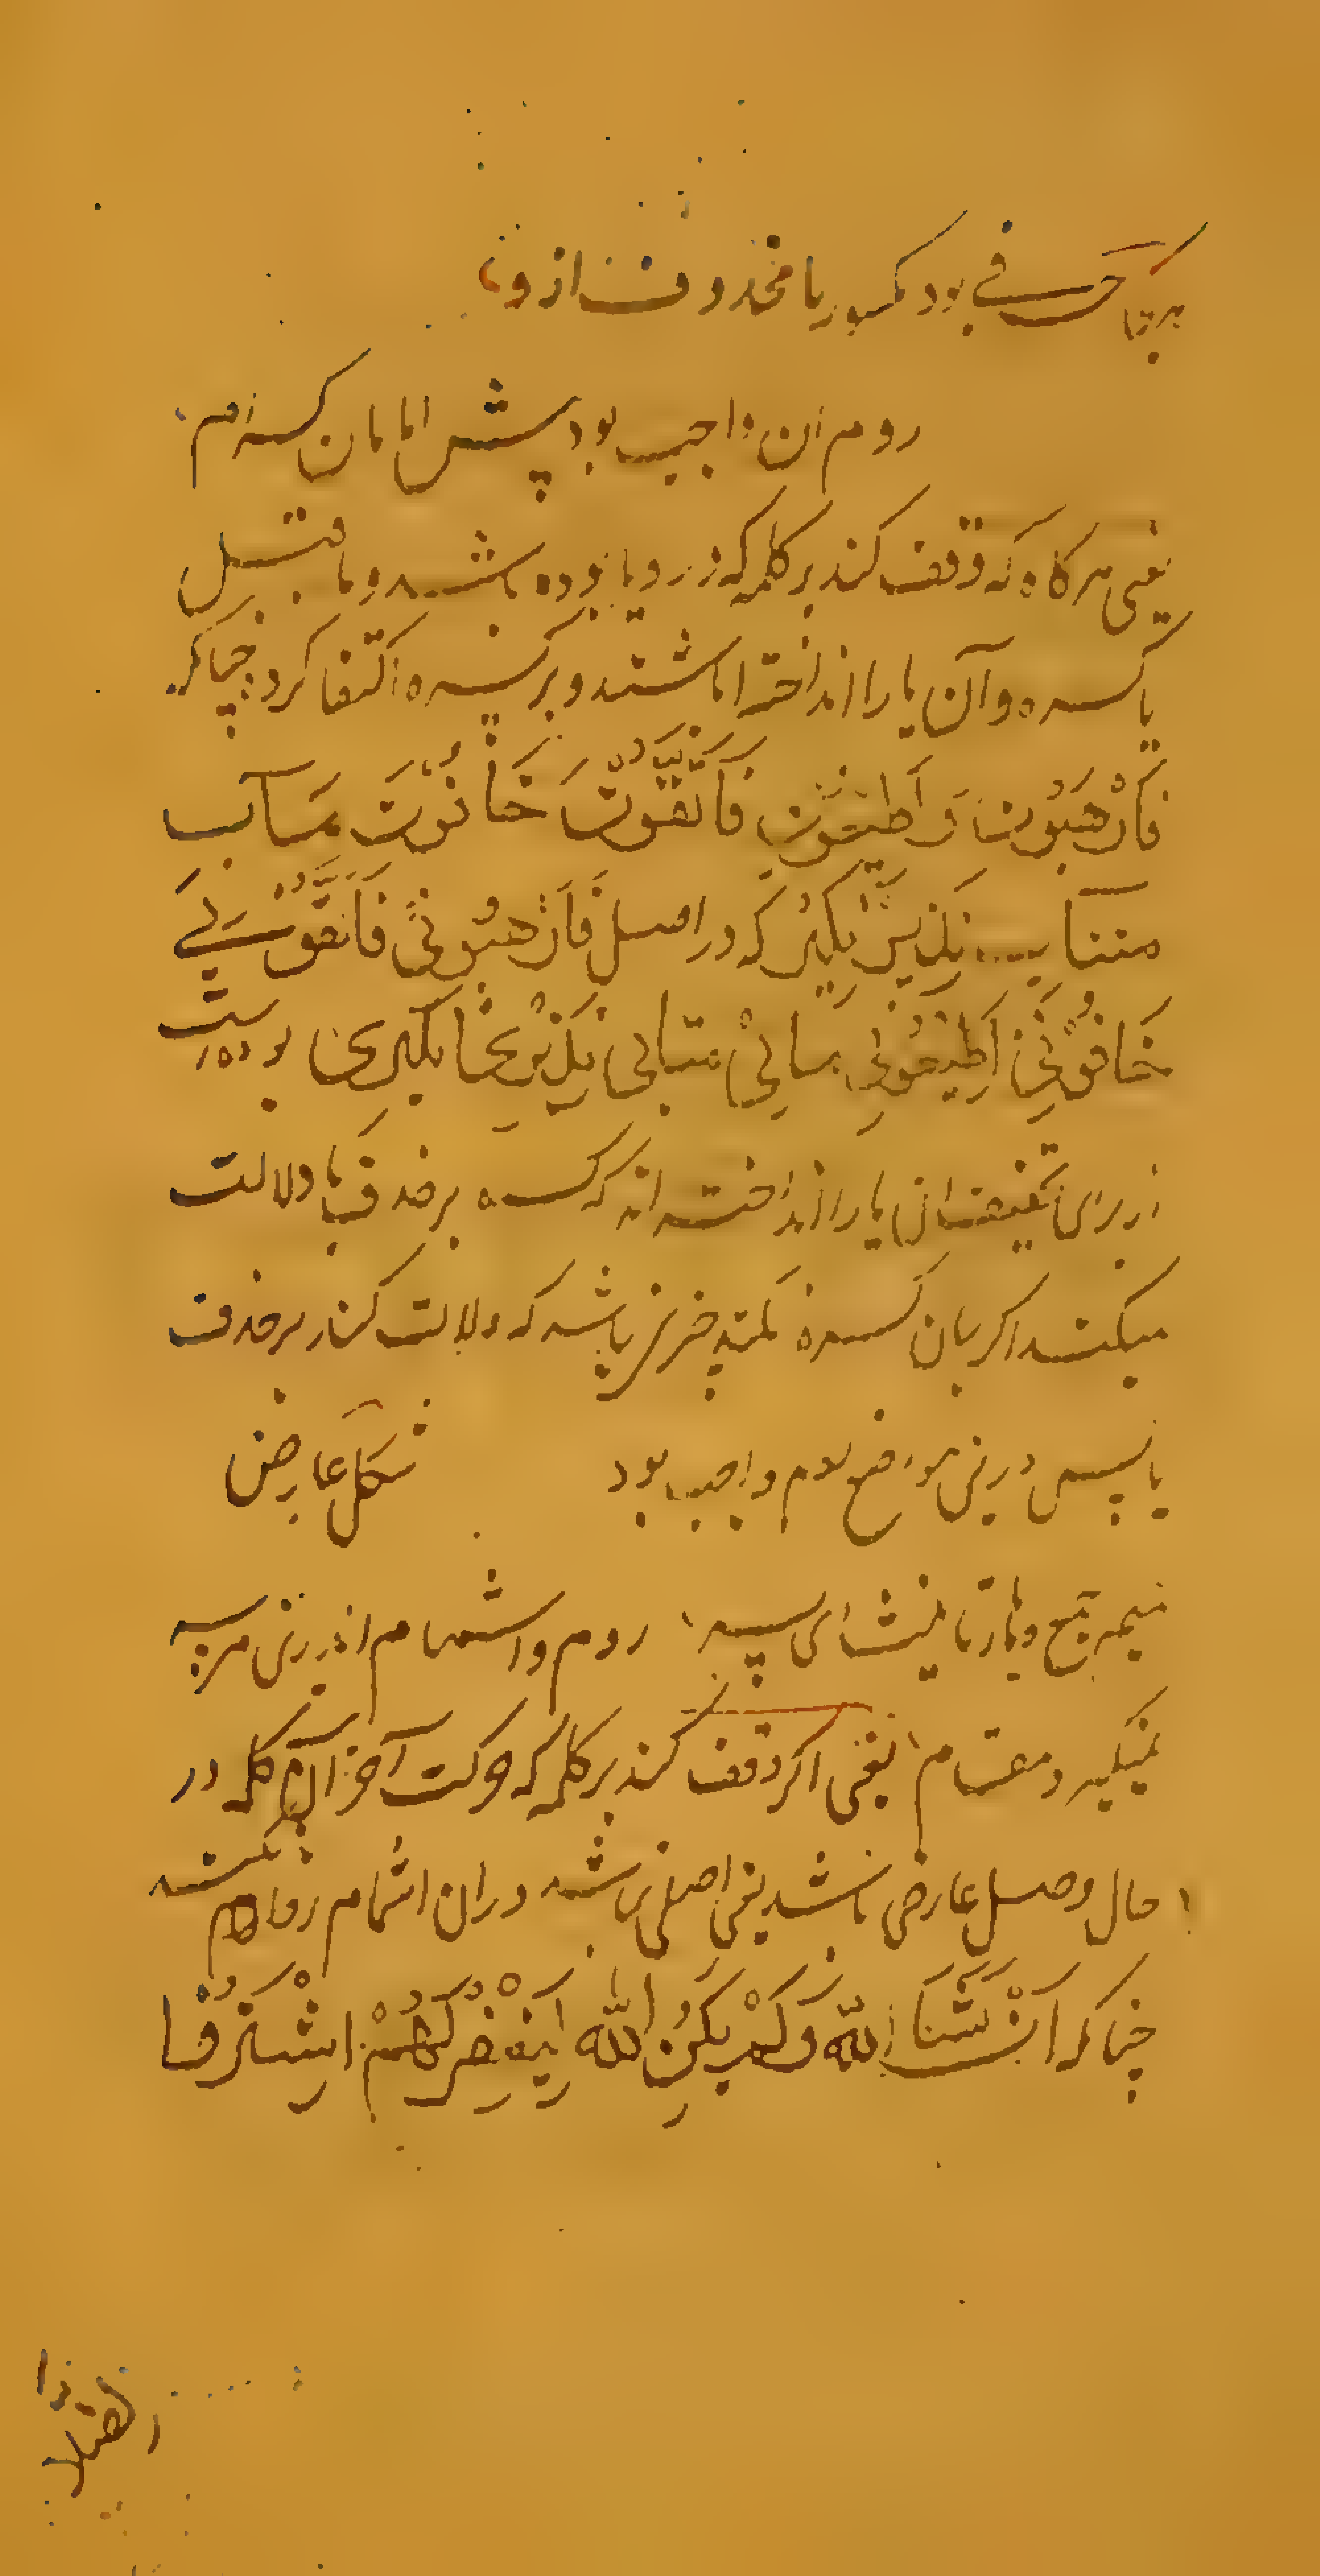 هرجا حرفی بود مکسور یا محذوف ازو
روم ان واجب بود پیش امامان کرام
یعنی هرگاه که وقف کند بر کلمه که در و یا بوده باشد و ماقبل
یا کسره و آن یا را انداخته باشند و بر کسره اکتفا کرده چنانکه
فَارْهَبُونِ وَ اَطِیعُونِ فَاتَّقُونِ خَافُونِ مَآب
متاب نذیر نکیر که در اصل فَارْهَبُونی فَاتَّقُونی
خَافُونی اَطِیعُونی مآبی متابی نذیری نکیری بوده است
از برای تخفیف ان یا را انداخته اند که کسره بر حذف یا دلالت
میکند اکر بان کسره تکلم جزیی باشد که دلالت کند بر حذف
یا پس درین مواضع روم واجب بود شکل عارض
میم جمع و هاء تانیث ای پسر روم و اشمام اندرین هر سه
نمیکیرد مقام یعنی اکر وقف کند بر کلمه که حرکت آخر آن کلمه در
حال وصل عارض باشد یعنی اصلی نباشد دران اشمام روم نکنند
چنانکه اِنْ شَآءَ اللّه وَلَمْ یَکُنِ اللّه اَغْفِرْ لَهُمْ اِشْتَرَوُا